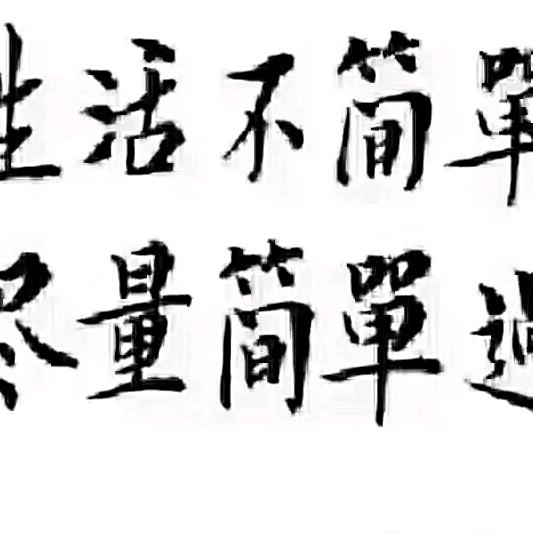 生活不简單
尽量简單過